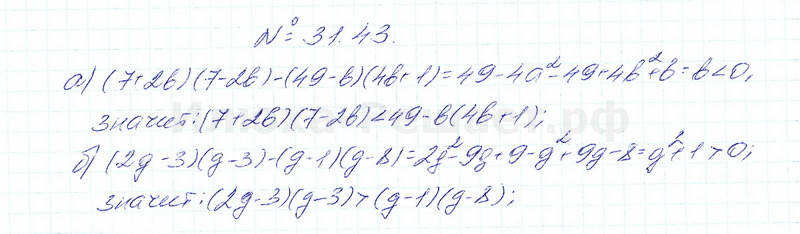 № 31.43.
а) (7+2в)(7-2в)-(49-в)(4в+1)=49-4а²-49+4в²+в=в<0,
значит: (7+2в)(7-2в)<49-в(4в+1);
б) (2g-3)(g-3)-(g-1)(g-8)=2g²-9g+9-g²+9g-8=g²+1>0;
значит: (2g-3)(g-3)>(g-1)(g-8);